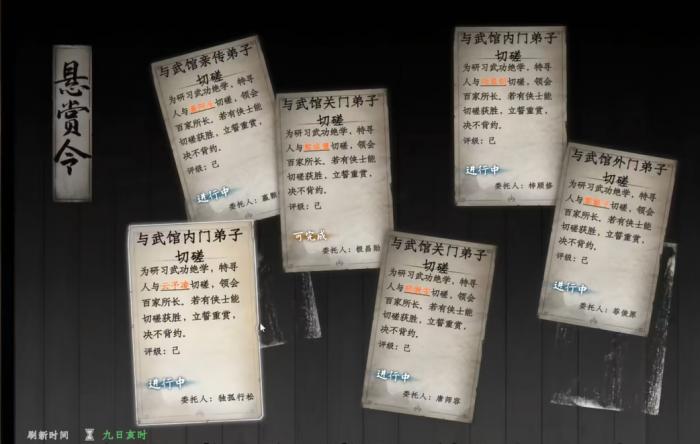 悬赏令
与武馆亲传弟子
切磋
为研习武功绝学，特寻
人与切磋，领会
百家所长。若有侠士能
切磋获胜，立誓重赏，
决不背约。
评级：己
进行中
委托人：
与武馆关门弟子
切磋
为研习武功绝学，特寻
人与切磋，领会
百家所长。若有侠士能
切磋获胜，立誓重赏，
决不背约。
评级：己
可完成
委托人：
与武馆内门弟子
切磋
为研习武功绝学，特寻
人与切磋，领会
百家所长。若有侠士能
切磋获胜，立誓重赏，
决不背约。
评级：己
进行中
委托人：梓顺修
与武馆外门弟子
切磋
为研习武功绝学，特寻
人与切磋，领会
百家所长。若有侠士能
切磋获胜，立誓重赏，
决不背约。
评级：己
进行中
委托人：
与武馆内门弟子
切磋
为研习武功绝学，特寻
人与云子凌切磋，领会
百家所长。若有侠士能
切磋获胜，立誓重赏，
决不背约。
评级：己
进行中
委托人：独孤行松
与武馆关门弟子
切磋
为研习武功绝学，特寻
人与切磋，领会
百家所长。若有侠士能
切磋获胜，立誓重赏，
决不背约。
评级：己
进行中
委托人：唐师容
刷新时间 九日亥时